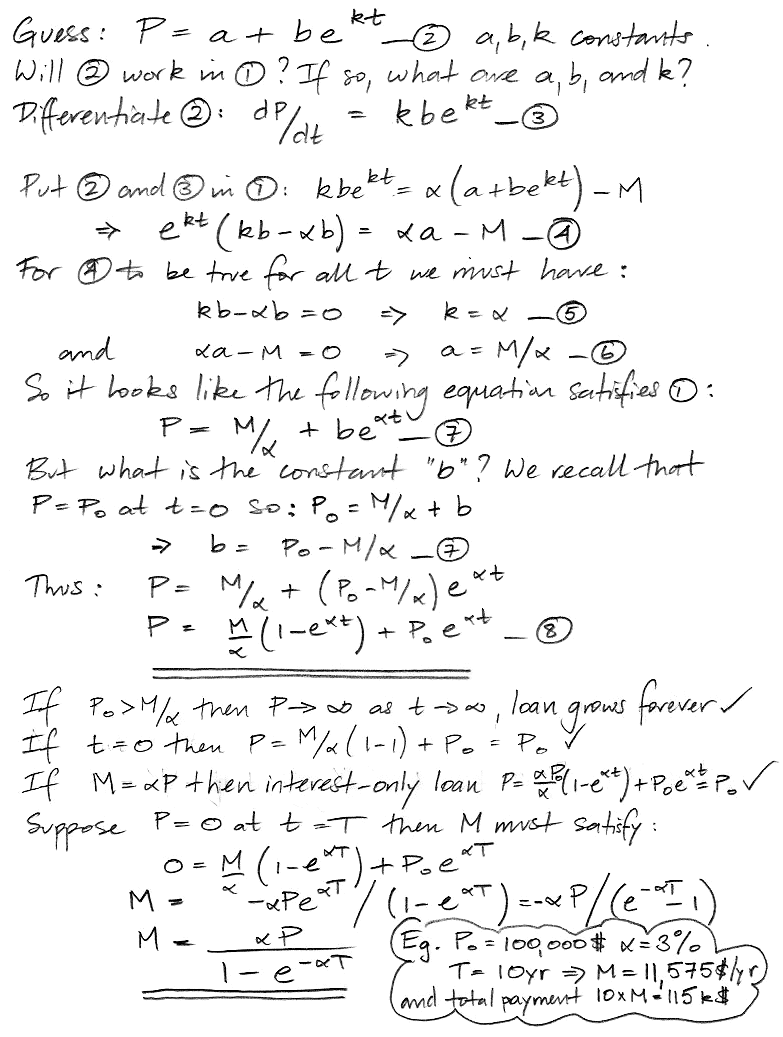 Guess: P = a + be^kt —② a,b,k constants.
Will ② work in ①? If so, what are a, b, and k?
Differentiate ②: dP/dt = kbe^kt —③
Put ② and ③ in ①: kbe^kt = α(a+be^kt) – M
⇒ e^kt (kb–αb) = αa – M —④
For ④ to be true for all t we must have:
kb–αb = 0 ⇒ k = α —⑤
and αa – M = 0 ⇒ a = M/α —⑥
So it looks like the following equation satisfies ①:
P = M/α + be^αt —⑦
But what is the constant "b"? We recall that
P = P₀ at t=0 so: P₀ = M/α + b
⇒ b = P₀ – M/α —⑦
Thus: P = M/α + (P₀–M/α) e^αt
P = M/α (1–e^αt) + P₀e^αt —⑧
If P₀>M/α then P→∞ as t→∞, loan grows forever ✓
If t=0 then P = M/α(1–1) + P₀ = P₀ ✓
If M=αP then interest-only loan P= αP₀/α(1–e^αt)+P₀e^αt=P₀ ✓
Suppose P=0 at t=T then M must satisfy:
0 = M/α (1–e^αT) + P₀e^αT
M = –αPe^αT / (1–e^αT) = –αP/(e^–αT–1)
M = αP / 1–e^–αT
Eg. P₀=100,000$ α=3%
T=10yr ⇒ M=11,575$/yr
and total payment 10×M=115k$